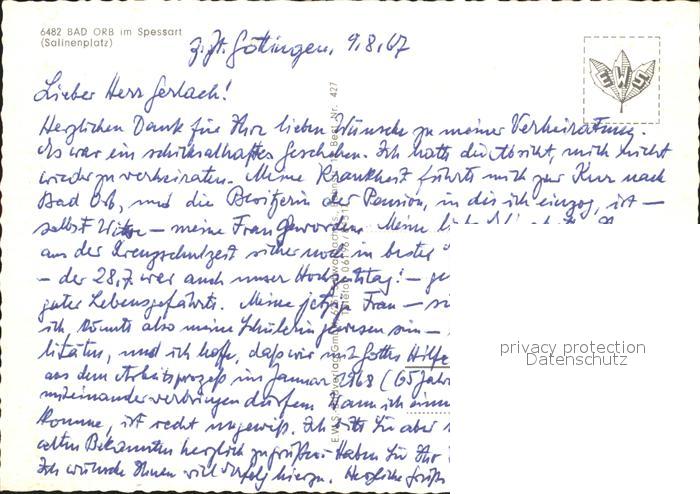 6482 BAD ORB im Spessart
(Salinenplatz)
z.Zt. Göttingen, 9.8.67
EWS
Lieber Herr Gerlach!
Herzlichen Dank für Ihre lieben Wünsche zu meiner Verheiratung.
Es war ein schicksalhaftes Geschehen. Ich hatte die Absicht, mich nicht
wieder zu verheiraten. Meine Krankheit führte mich zur Kur nach
Bad Orb, und die Besitzerin der Pension, in die ich einzog, ist –
selbst Witwe – meine Frau geworden. Meine
aus der Kreuzschulzeit sicher noch in bester
– der 28,7. war auch unser Hochzeitstag! –
guter Lebensgefährte. Meine jetzige Frau –
ich, könnte also meine Schülerin gewesen sein –
litäten, und ich hoffe, daß wir mit Gottes Hilfe
aus dem Arbeitsprozeß im Januar 1968 (65 Jahre
miteinander verbringen dürfen. Wann ich einmal
komme, ist recht ungewiß. Ich bitte Sie aber
alten Bekannten herzlich zu grüßen. Haben Sie Ihr
Ich wünsche Ihnen viel Erfolg hierzu. Herzliche Grüße
Best. Nr. 427
privacy protection
Datenschutz